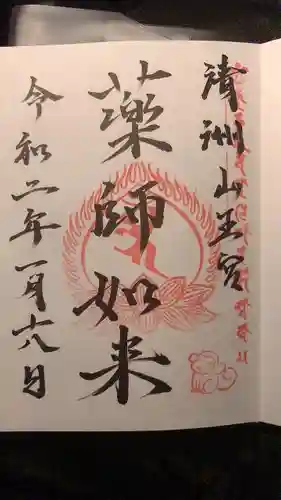 清洲山王宮
薬師如来
令和二年一月六日